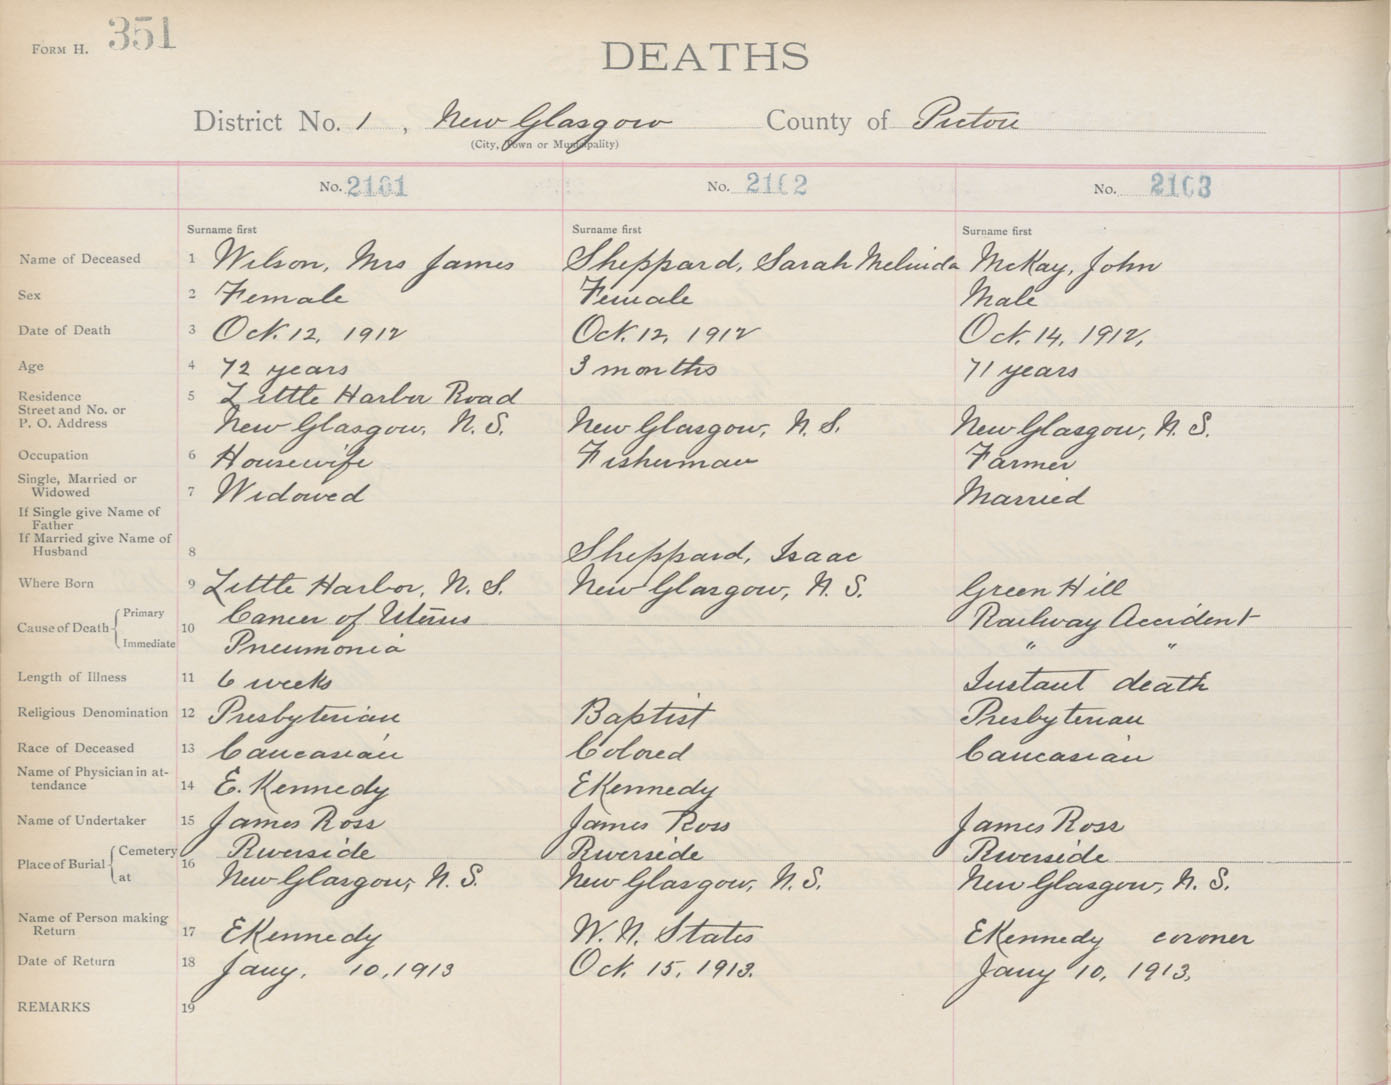 FORM H. 351
DEATHS
District No. 1, New Glasgow County of Pictou
(City, Town or Municipality)
No. 2101 No. 2102 No. 2103
Surname first Surname first Surname first
Name of Deceased 1 Wilson, Mrs James Sheppard, Sarah Melinda McKay, John
Sex 2 Female Female Male
Date of Death 3 Oct. 12, 1912 Oct. 12, 1912 Oct. 14, 1912.
Age 4 72 years 3 months 71 years
Residence 5 Little Harbor Road
Street and No. or
P. O. Address New Glasgow, N. S. New Glasgow, N. S. New Glasgow, N. S.
Occupation 6 Housewife Fisherman Farmer
Single, Married or
Widowed 7 Widowed Married
If Single give Name of
Father
If Married give Name of
Husband 8 Sheppard, Isaac
Where Born 9 Little Harbor, N. S. New Glasgow, N. S. Green Hill
Cause of Death Primary 10 Cancer of Uterus Railway Accident
Immediate Pneumonia " "
Length of Illness 11 6 weeks Instant death
Religious Denomination 12 Presbyterian Baptist Presbyterian
Race of Deceased 13 Caucasian Colored Caucasian
Name of Physician in at-
tendance 14 E. Kennedy E Kennedy
Name of Undertaker 15 James Ross James Ross James Ross
Place of Burial Cemetery 16 Riverside Riverside Riverside
at New Glasgow, N. S. New Glasgow, N. S. New Glasgow, N. S.
Name of Person making
Return 17 E Kennedy W. N. States E Kennedy coroner
Date of Return 18 Jany. 10, 1913 Oct. 15, 1913. Jany 10, 1913.
REMARKS 19